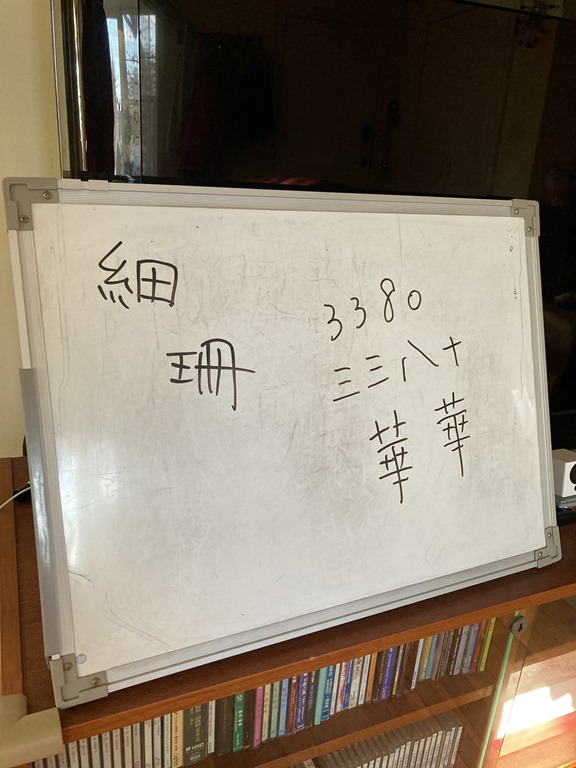 細
珊
3380
三三八十
華 華